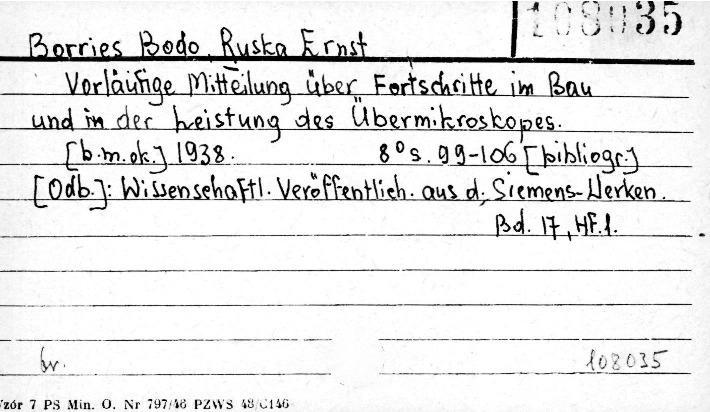 108035
Borries Bodo, Ruska Ernst
Vorläufige Mitteilung über Fortschritte im Bau
und in der Leistung des Übermikroskopes.
[b.m.ok.] 1938. 8° s. 99-106 [bibliogr.]
[Odb.]: Wissenschaftl. Veröffentlich. aus d. Siemens-Werken.
Bd. 17, Hf. 1.
br. 108035
Wzór 7 PS Min. O. Nr 797/46 PZWS 48/C146